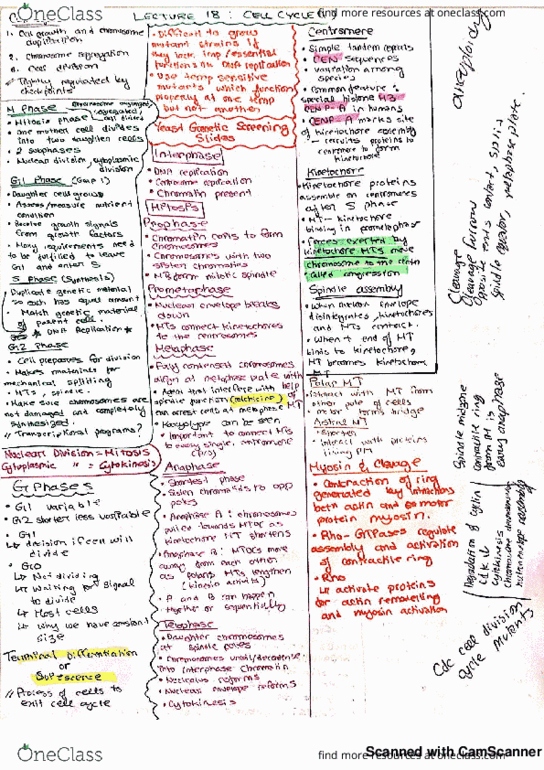 OneClass
find more resources at oneclass.com
LECTURE 18: CELL CYCLE
1. Cell growth and chromosome
duplication
2. Chromosome segregation
3. Cell division
Tightly regulated by
checkpoints
M Phase
• Mitosis phase
• one mother cell divides
into two daughter cells
• 2 subphases
• Nuclear division, cytoplasmic
division
G1 Phase (Gap 1)
• Daughter cells grows
• Assess/measure nutrient
condition
• Receive growth signals
from growth factors
• Many requirements need
to be fulfilled to leave
G1 and enter S
S Phase (Synthesis)
• Duplicate genetic material
so each has equal amount
• Match genetic material
of parent cell
* DNA Replication *
G2 Phase
• Cell prepares for division
• Makes materials for
mechanical splitting
• MTs, spindle
• Make sure chromosomes are
not damaged and completely
synthesized
" Transcriptional programs?
Nuclear Division = Mitosis
Cytoplasmic " = Cytokinesis
G Phases
• G1 variable
• G2 shorter less variable
• G1
↳ decision if cell will
divide
• G0
↳ Not dividing
↳ Waiting for signal
to divide
↳ Most cells
↳ Why we have constant
size
Terminal Differentiation
or
// Process of cells to
exit cell cycle
• Difficult to grow
mutant strains if
they lack imp/essential
functions in cell replication
• Use temp sensitive
mutants which function
properly at one temp
but not another
Yeast Genetic Screening
Slides
Interphase
• DNA replication
• Centrosome replication
• Chromatin present
Mitosis
Prophase
• Chromatin coils to form
chromosomes
• Chromosomes with two
sister chromatids
• MTs form mitotic spindle
Prometaphase
• Nuclear envelope breaks
down
• MTs connect kinetochores
to the centrosomes
Metaphase
• Fully condensed chromosomes
align at metaphase plate with help
of MT
• Agents that interfere with
spindle function (colchicine)
can arrest cells at metaphase
• Karyotype can be seen
• Important to connect MTs
to every single centromere
Anaphase
• Shortest phase
• Sister chromatids to opp
poles
• Anaphase A: chromosomes
pulled towards MTOC as
kinetochore MT shortens
• Anaphase B: MTOCs move
away from each other
as polar MTs lengthen
(kinesin activity)
• A and B can happen
together or sequentially
Telophase
• Daughter chromosomes
at spindle poles
• Chromosomes uncoil/decondense
into interphase chromatin
• Nucleolus reforms
• Nuclear envelope reforms
• Cytokinesis
Centromere
• Simple tandem repeats
• CEN sequences
• variation among
species
• common feature:
special histone H3
CENP-A in humans
• CENP-A marks site
of kinetochore assembly
- recruits proteins to
centromere to form
kinetochore
Kinetochore
• Kinetochore proteins
assemble on centromeres
after S phase
• MT - kinetochore
binding in prometaphase
• Forces exerted by
kinetochore MTs move
chromosome to the center
called congression
Spindle assembly
• When nuclear envelope
disintegrates, kinetochores
and MTs contact.
• When + end of MT
binds to kinetochore,
MT becomes kinetochore
MT
Polar MT
• interact with MT from
other pole of cells
• motor forms bridge
Astral MT
• Shorter
• interact with proteins
lining PM
Myosin & Cleavage
• Contraction of ring
generated by interactions
both actin and motor
protein myosin.
• Rho-GTPases regulate
assembly and activation
of contractile ring
• Rho
↳ activate proteins
for actin remodelling
and myosin activation
aneuploidy
Cleavage
Cleavage furrows
spindle equator, metaphase plate.
Spindle midzone
contractile ring
form in
early anaphase
Degradation of cyclin
Cdk ↓
Cytokinesis
Chromosome decondensation
nuclear envelope assembly
Cdc cell division
cycle mutants
OneClass
find more resources at oneclass.com
Scanned with CamScanner